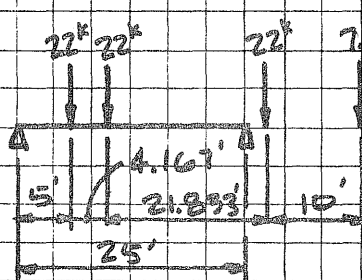 22ᵏ 22ᵏ 22ᵏ 7.
4.167'
5' 21.833' 10'
25'